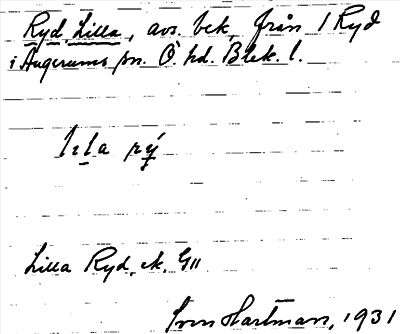 Ryd, Lilla, avs. bek. från 1 Ryd
i Augerums sn. Ö. hd. Blek. l.
Lilla Ryd, ek. G11
Sven Hartman, 1931